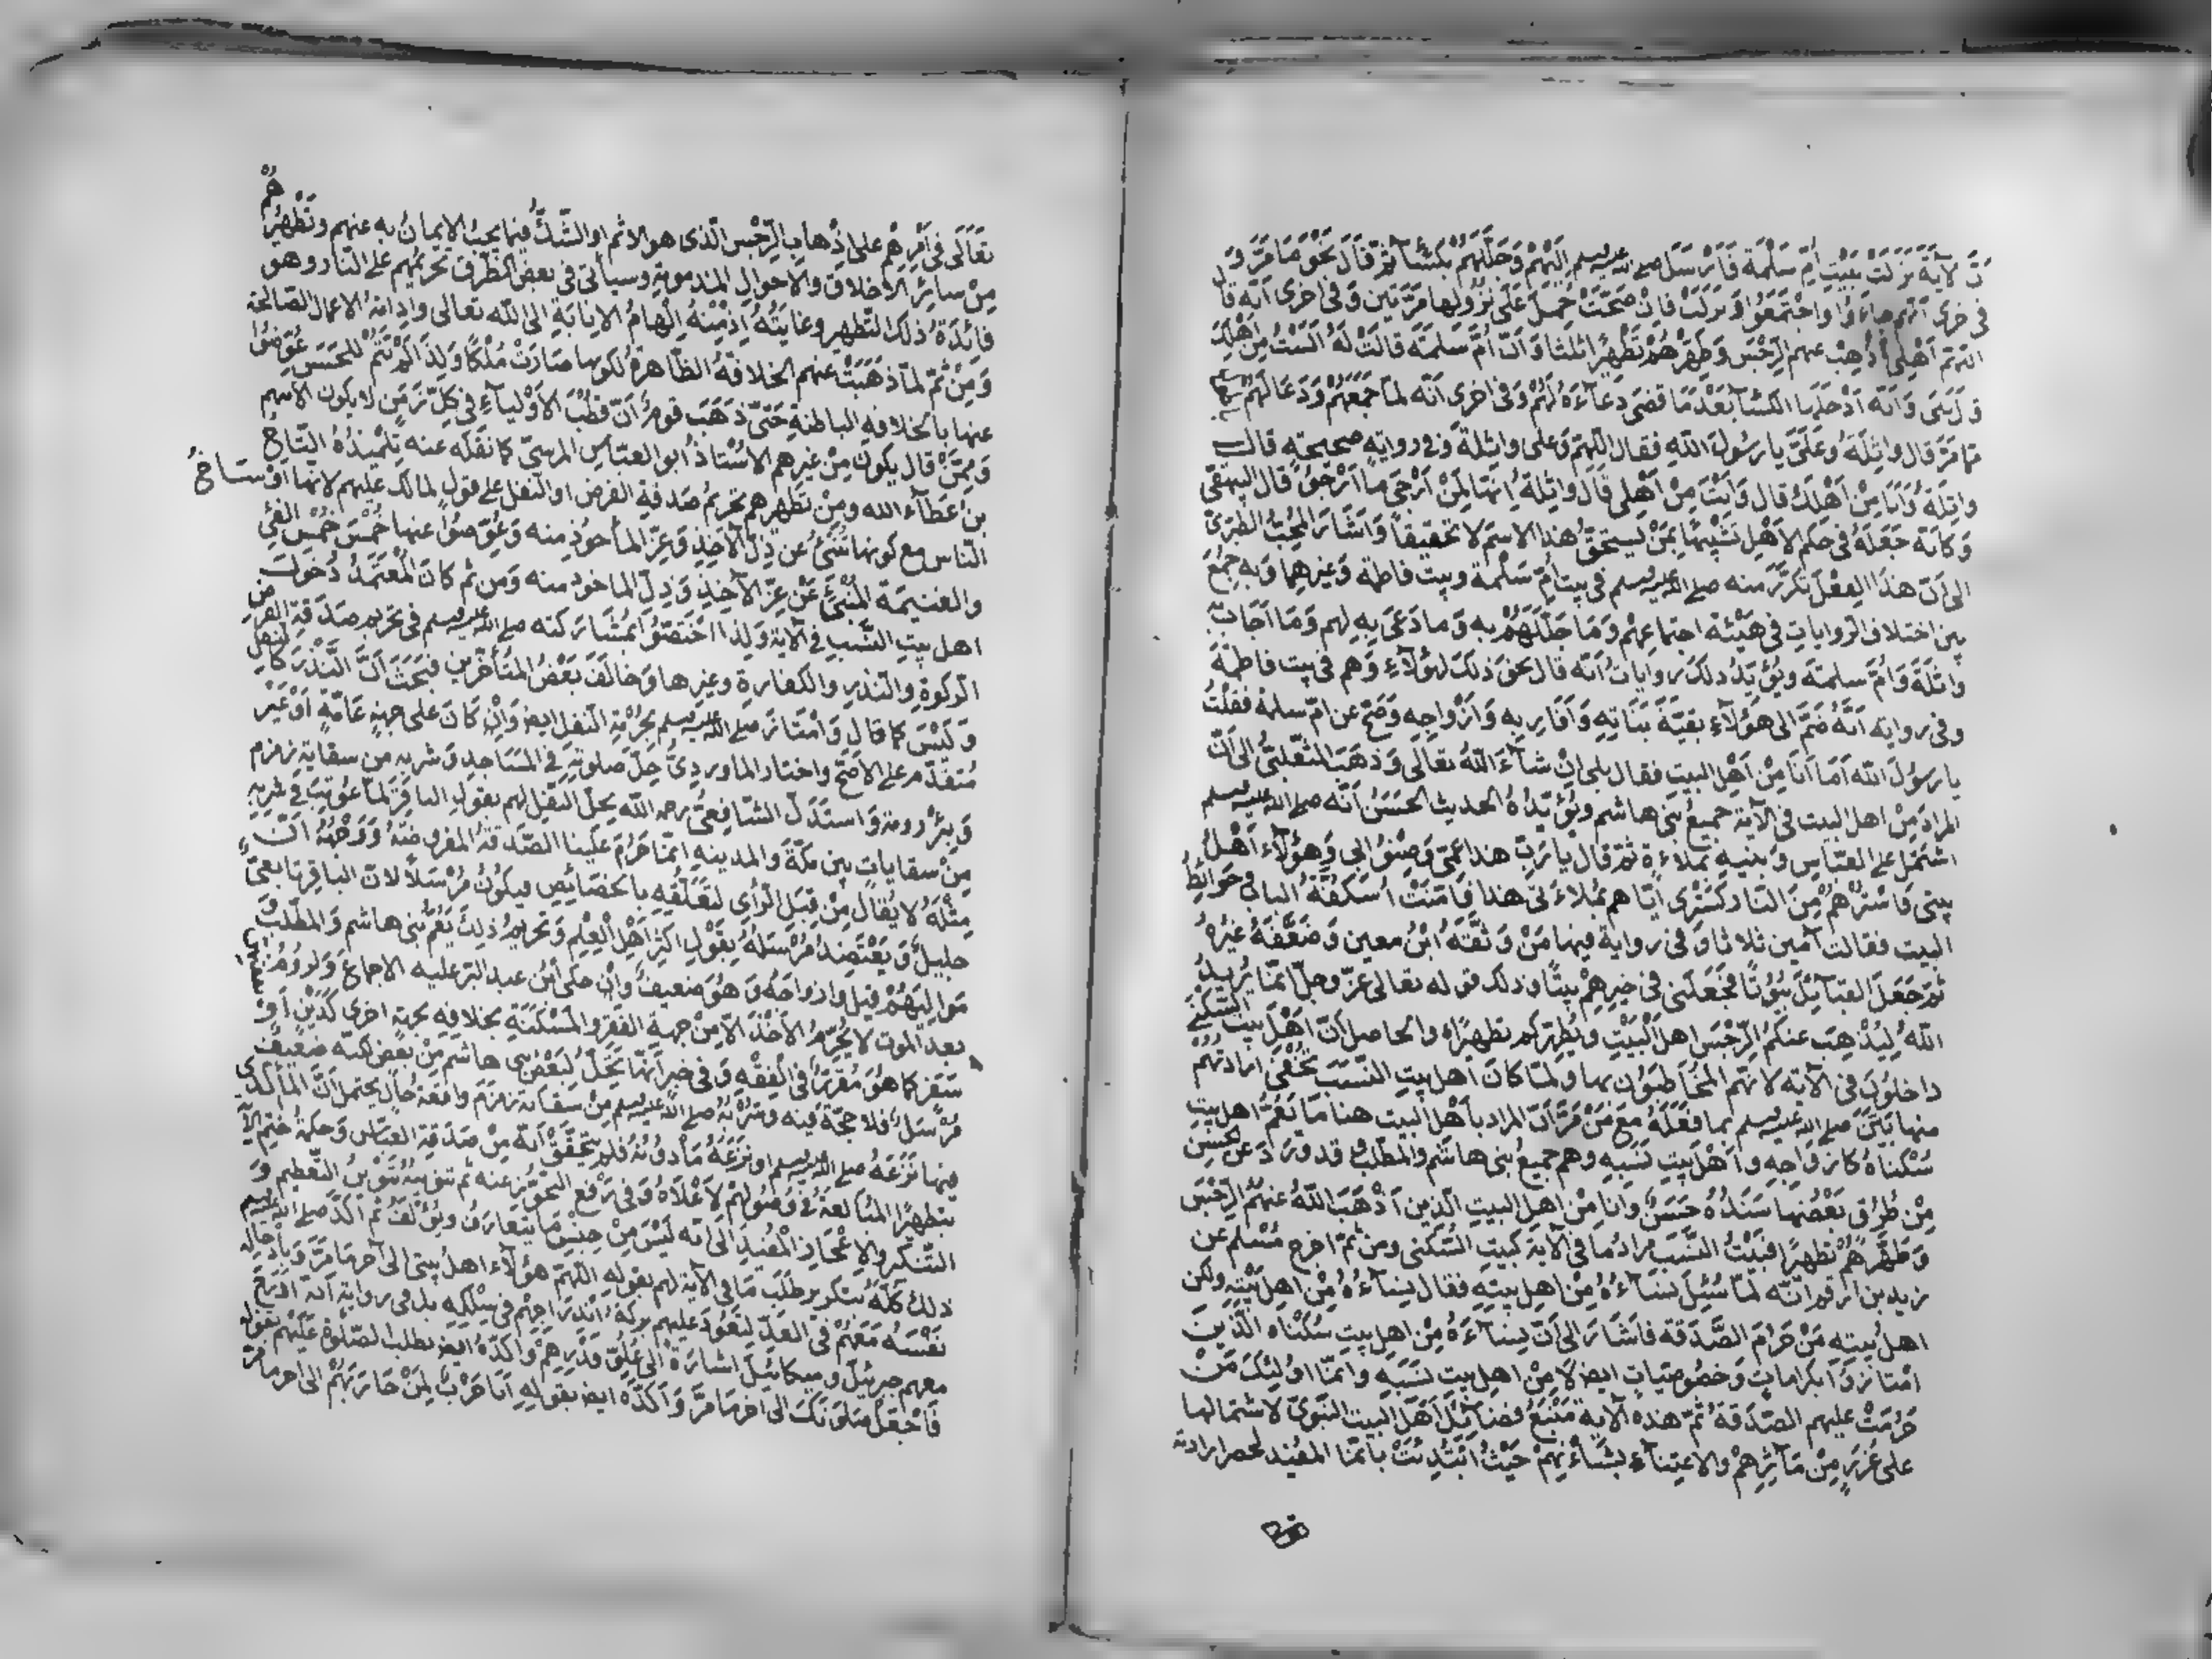 ن لآية نزلت ببيت ام سلمة فارسل صلى الله عليه وسلم اليهم وجللهم بكساء ثم قال نحو ما مر و
في خرى انهم جاءوا واجتمعوا ونزلت فان صحت حمل على نزولها مرتين وفي اخرى انه قال
اللهم اهلي أذهب عنهم الرجس وطهرهم تطهيرا ثلثا وان ام سلمة قالت له الست من اهلك
قال بلى وانه ادخلها الكساء بعد ما قضى دعاءه لهم وفي اخرى انه لما جمعهم ودعا لهم
بما مر قال واثلة وعلى يا رسول الله فقال اللهم وعلى واثلة وفي رواية صحيحة قال
واثلة وانا من اهلك قال وانت من اهلي قال واثلة انها لمن ارجى ما ارجو قال البيهقي
وكانه جعله في حكم الاهل تشبيها بمن يستحق هذا الاسم لا تحقيقا واشار المحب الطبري
الى ان هذا الفعل تكرر منه صلى الله عليه وسلم في بيت ام سلمة وبيت فاطمة وغيرهما وبه جمع
بين اختلاف الروايات في هيئة اجتماعهم وما جللهم به وما دعى به لهم وما اجاب به
واثلة وام سلمة ويؤيد ذلك روايات انه قال نحو ذلك لهؤلاء وهم في بيت فاطمة
وفي رواية انه ضم الى هؤلاء بقية بناته واقاربه وازواجه وصح عن ام سلمة فقلت
يا رسول الله اما انا من اهل البيت فقال بلى ان شاء الله تعالى وذهب الثعلبي الى ان
المراد من اهل البيت في الآية جميع بني هاشم ويؤيده الحديث الحسن انه صلى الله عليه وسلم
اشتمل على العباس وبنيه بملاءة ثم قال يا رب هذا عمي وصنو ابي وهؤلاء اهل
بيتي فاسترهم من النار كستري اياهم بملاءتي هذا فامنت اسكفة الباب وحوائط
البيت فقالت آمين ثلاثا وفي رواية فيها من وثقه ابن معين وضعفه غيره
ثم جعل القبائل بيوتا فجعلني في خيرهم بيتا وذلك قوله تعالى عز وجل انما يريد
الله ليذهب عنكم الرجس اهل البيت ويطهركم تطهيراه والحاصل ان اهل بيت السكنى
داخلون في الآية لانهم المخاطبون بها ولما كان اهل بيت النسب تخفى ارادتهم
منها بين صلى الله عليه وسلم بما فعله مع من مر ان المراد باهل البيت هنا ما يعم اهل بيت
سكناه كازواجه واهل بيت نسبه وهم جميع بني هاشم والمطلب وقد ورد عن الحسن
من طرق بعضها سنده حسن وانا من اهل البيت الذين أذهب الله عنهم الرجس
وطهرهم تطهيرا فبيت النسب مراد ما في الآية كبيت السكنى ومن ثم اخرج مسلم عن
زيد بن ارقم انه لما سئل نساءه من اهل بيته فقال نساءه من اهل بيته ولكن
اهل بيته من حرام الصدقة فاشار الى ان نساءه من اهل بيت سكناه الذين
امتازوا بكرامات وخصوصيات ايض لا من اهل بيت نسبه وانما اولئك من
حرمت عليهم الصدقة ثم هذه الآية منبع فضائل اهل البيت النبوي لاشتمالها
على غرر من مآثرهم والاعتناء بشأنهم حيث ابتدئت بانما المفيد لحصر ارادته
هم
تعالى في امرهم على اذهاب الرجس الذي هو الاثم او الشك فيما يجب الايمان به عنهم وتطهير
من سائر الاخلاق والاحوال المذمومة وسيأتي في بعض الطرق تحريمهم على النار وهو
فائدة ذلك التطهير وغايته اذ منه الهام الانابة الى الله تعالى وادامة الاعمال الصالحة
ومن ثم لما ذهبت عنهم الخلافة الظاهرة لكونها صارت ملكا ولذا لم تتم للحسن عوضوا
عنها بالخلافة الباطنة حتى ذهب قوم ان قطب الاولياء في كل زمن لا يكون الا منهم
وممن قال يكون من غيرهم الاستاذ ابو العباس المرسي كما نقله عنه تلميذه التاج
بن عطاء الله ومن تطهيرهم تحريم صدقة الفرض او النفل على قول لمالك عليهم لانها اوساخ
الناس مع كونها تنبئ عن ذل الآخذ وعز المأخوذ منه وعوضوا عنها خمس خمس الفئ
والغنيمة المنبئ عن عز الآخذ وذل الماخوذ منه ومن ثم كان المعتمد دخول
اهل بيت النسب في الآية ولذا اختصوا بمشاركته صلى الله عليه وسلم في تحريم صدقة الفرض
الزكوة والنذر والكفارة وغيرها وخالف بعض المتأخرين فبحث ان النذر كالنفل
وليس كما قال وامتاز صلى الله عليه وسلم بحرمة النفل ايض وان كان على جهة عامة او غير
متقدم على الاصح واختار الماوردي حل صلوته في المساجد وشربه من سقاية زمزم
وبئر رومة واستدل الشافعي رحمه الله بحل النفل لهم بقول الباقر لما عوتب في شربه
من سقايات بين مكة والمدينه انما حرم علينا الصدقة المفروضة ووجهه ان
مثله لا يقال من قبل الرأى لتعلقه بالخصائص فيكون مرسلا لان الباقر تابعي
جليل ويعتضد مرسله بقول اكثر اهل العلم وتحريم ذلك يعم بني هاشم والمطلب و
مواليهم قيل وازواجه وهو ضعيف وان حكى ابن عبد البر عليه الاجماع ولزوم
بعد الموت لا يحرم الاخذ الا من جهة الفقر والمسكنة بخلافه بجهة اخرى كدين او
سفر كما هو مقرر في الفقه وفي خبر انها تحل لبعض بني هاشم من بعض لكنه ضعيف
مرسل فلا حجة فيه وشربه صلى الله عليه وسلم من سقاية زمزم واقعة حال يحتمل ان الماء الذي
فيها نزعه صلى الله عليه وسلم او نزعه مأذونه فلم يتحقق انه من صدقة العباس وحكمة ختم الآية
بتطهيرا المبالغة في وصولهم لاعلاه وفي رفع التجوز عنه ثم تنوينه تنوين التعظيم و
التنكير والاعجاز المفيد الى انه ليس من جنس ما يتعارف ويؤلف ثم اكد صلى الله عليه وسلم
ذلك كله بتكرير طلب ما في الآية لهم بقوله اللهم هؤلاء اهل بيتي الى آخر ما مر وبادخاله
نفسه معهم في العد لتعود عليهم بركة اندراجهم في سلكه بل في رواية انه ادرج
معهم جبرئيل وميكائيل اشارة الى علو قدرهم واكده ايض بطلب الصلوة عليهم بقوله
فاجعل صلوتك الى اخر ما مر واكده ايض بقوله انا حرب لمن حاربهم الى اخر ما مر